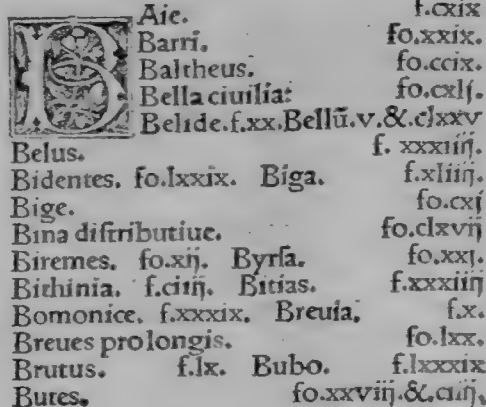 BAie. f.cxix
Barri. fo.xxix.
Baltheus. fo.ccix.
Bella ciuilia: fo.cxlj.
Belide.f.xx.Bellũ.v.&.clxxv
Belus. f. xxxiiij.
Bidentes. fo.lxxix. Biga. f.xliiij.
Bige. fo.cxj
Bina diſtributiue. fo.clxvij
Biremes. fo.xij. Byrſa. fo.xxj.
Bithinia. f.ciiij. Bitias. f.xxxiiij
Bomonice. f.xxxix. Breuia. f.x.
Breues pro longis. fo.lxx.
Brutus. f.lx. Bubo. f.lxxxix
Butes. fo.xxviij.&.ciiij.